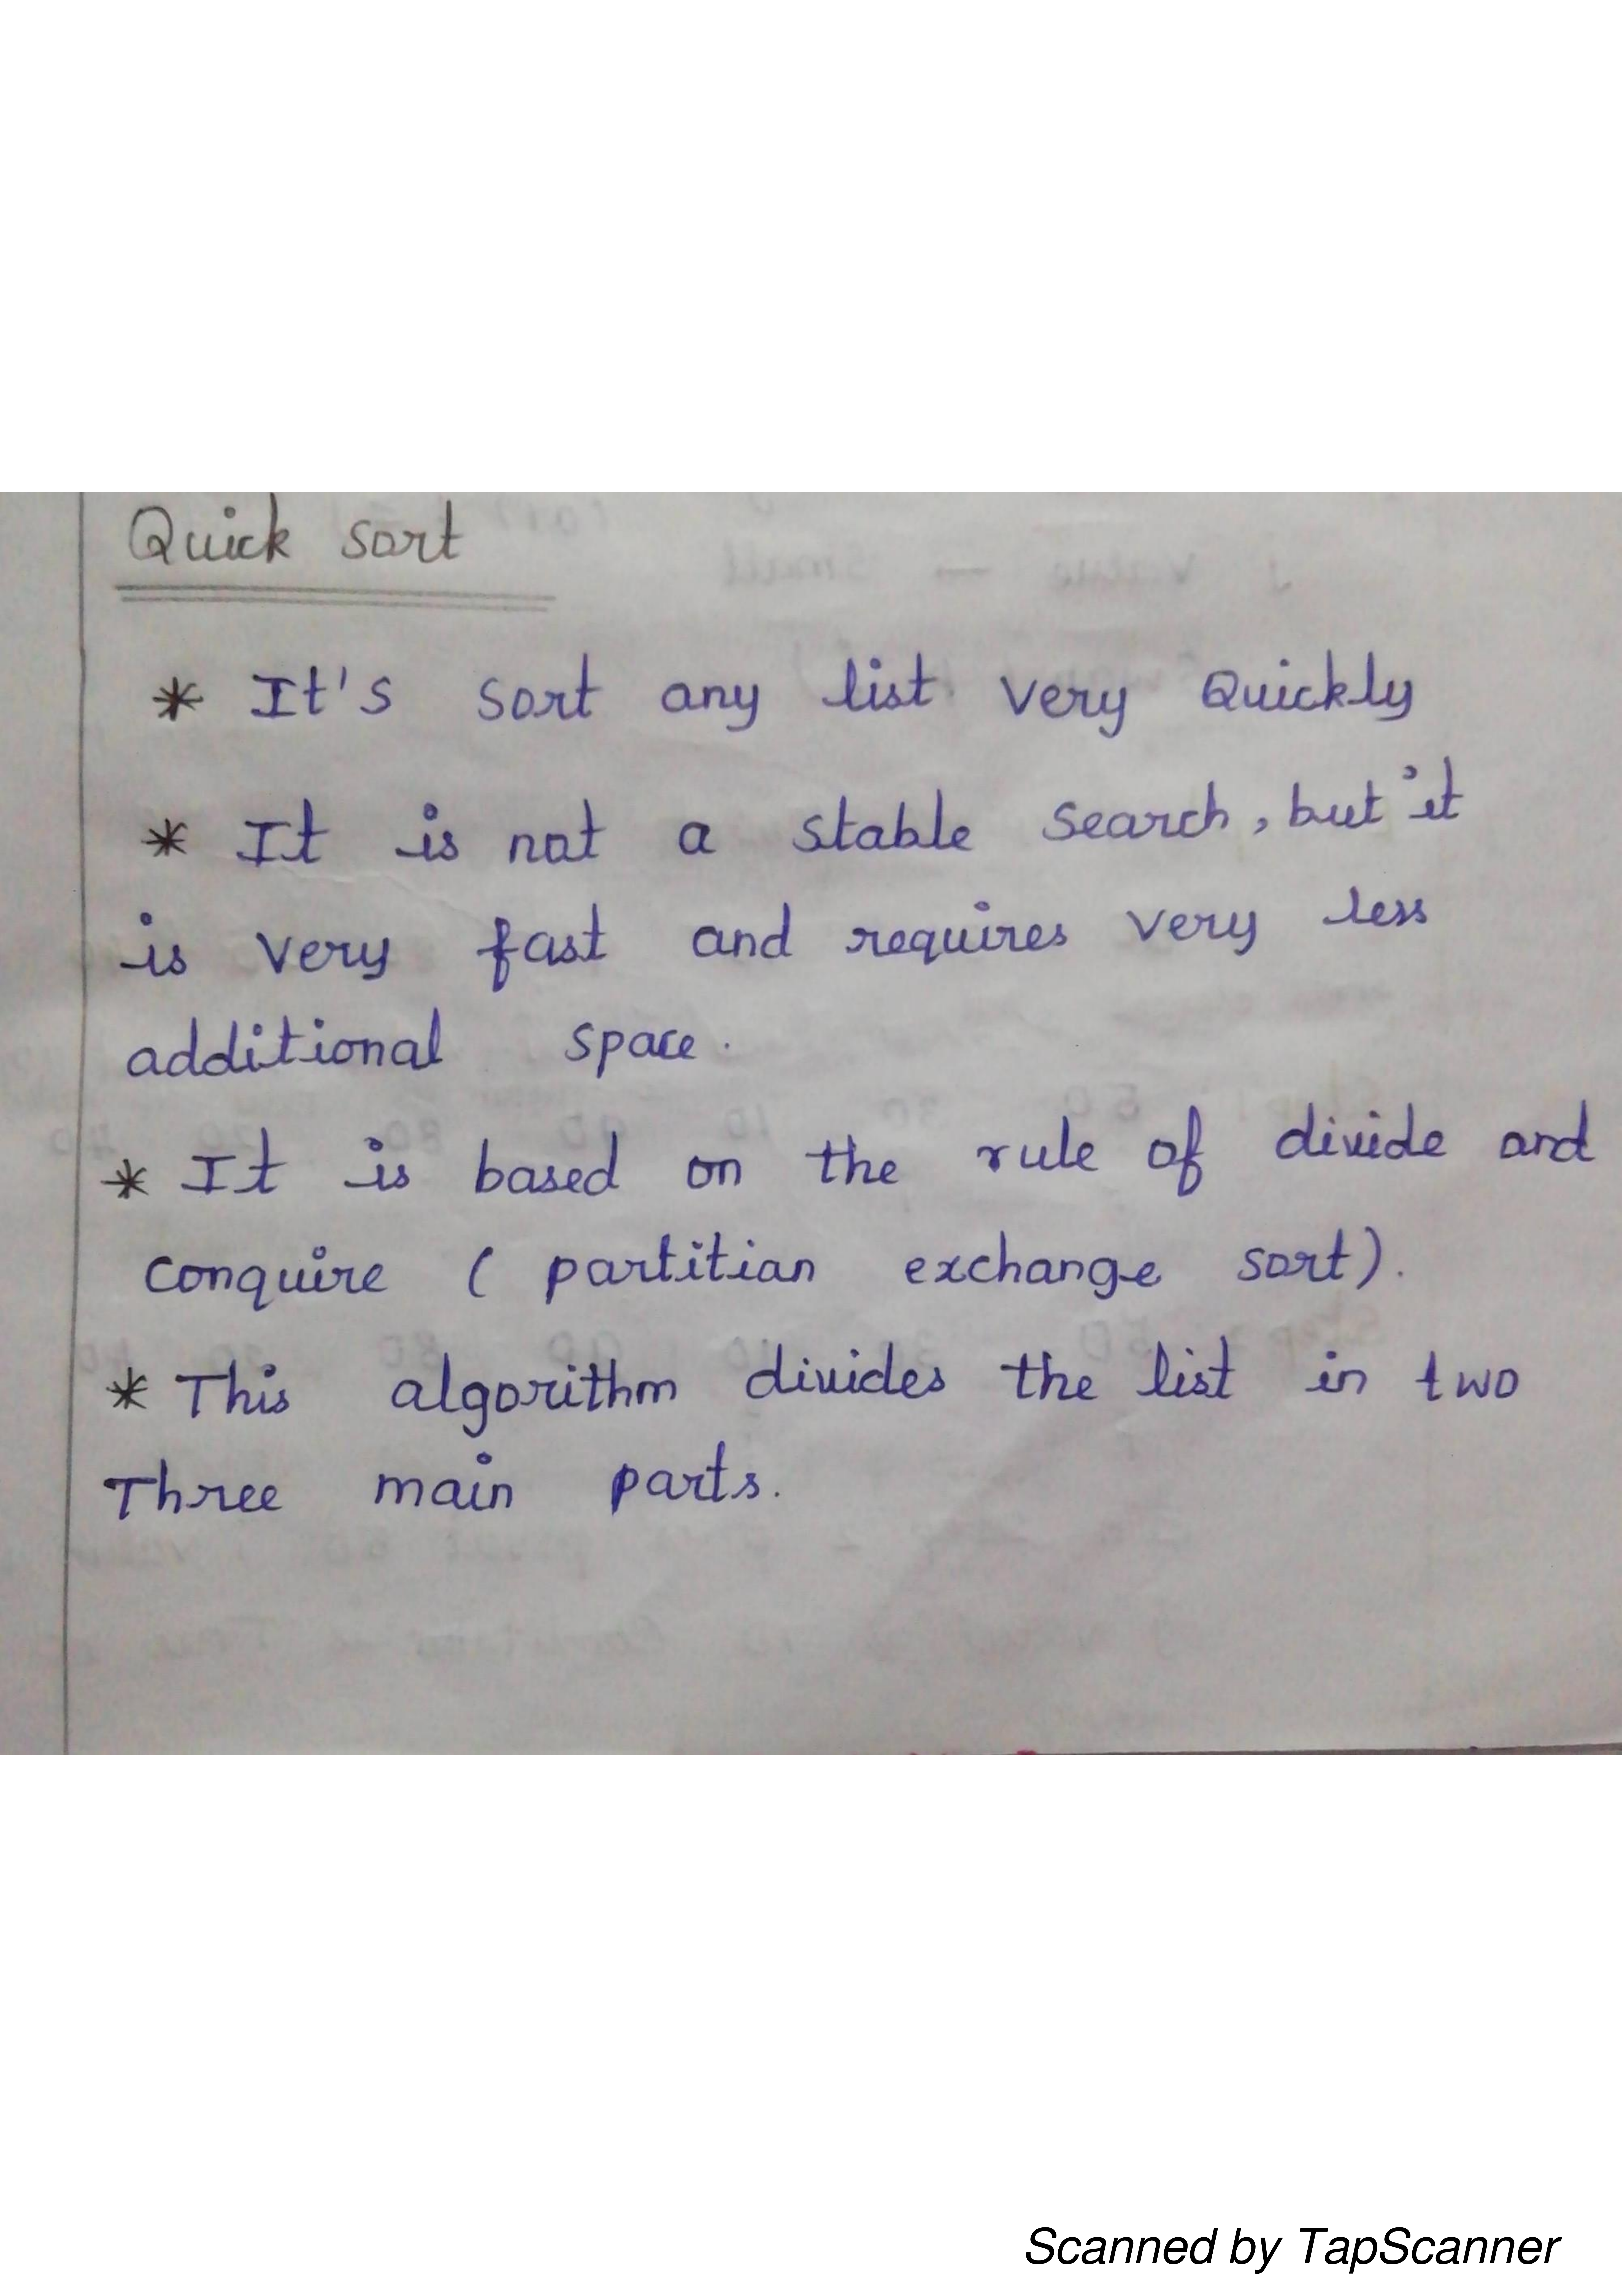 Quick sort
* It's sort any list very Quickly
* It is not a stable search, but it
is very fast and requires very less
additional space.
* It is based on the rule of divide and
conquire ( partitian exchange sort).
* This algorithm divides the list in two
Three main parts.
Scanned by TapScanner